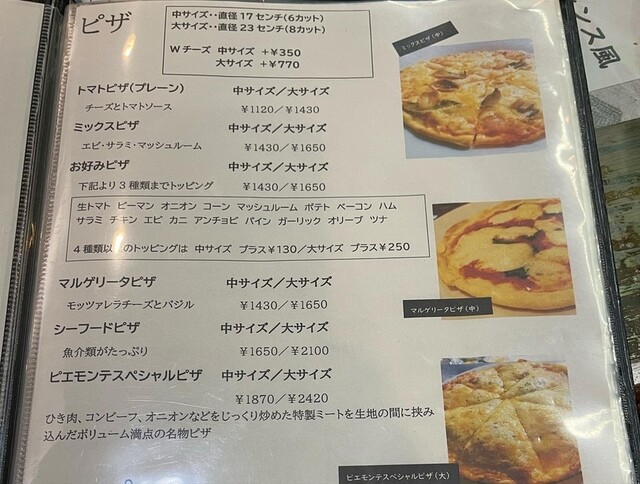 ピザ
中サイズ・・直径17センチ(6カット)
大サイズ・・直径23センチ(8カット)
Wチーズ 中サイズ +¥350
大サイズ +¥770
トマトピザ(プレーン) 中サイズ/大サイズ
チーズとトマトソース ¥1120/¥1430
ミックスピザ 中サイズ/大サイズ
エビ・サラミ・マッシュルーム ¥1430/¥1650
お好みピザ 中サイズ/大サイズ
下記より3種類までトッピング ¥1430/¥1650
生トマト ピーマン オニオン コーン マッシュルーム ポテト ベーコン ハム
サラミ チキン エビ カニ アンチョビ パイン ガーリック オリーブ ツナ
4種類以 のトッピングは 中サイズ プラス¥130/大サイズ プラス¥250
マルゲリータピザ 中サイズ/大サイズ
モッツァレラチーズとバジル ¥1430/¥1650
シーフードピザ 中サイズ/大サイズ
魚介類がたっぷり ¥1650/¥2100
ピエモンテスペシャルピザ 中サイズ/大サイズ
¥1870/¥2420
ひき肉、コンビーフ、オニオンなどをじっくり炒めた特製ミートを生地の間に挟み
込んだボリューム満点の名物ピザ
ミックスピザ(中)
マルゲリータピザ(中)
ピエモンテスペシャルピザ(大)
ンス風